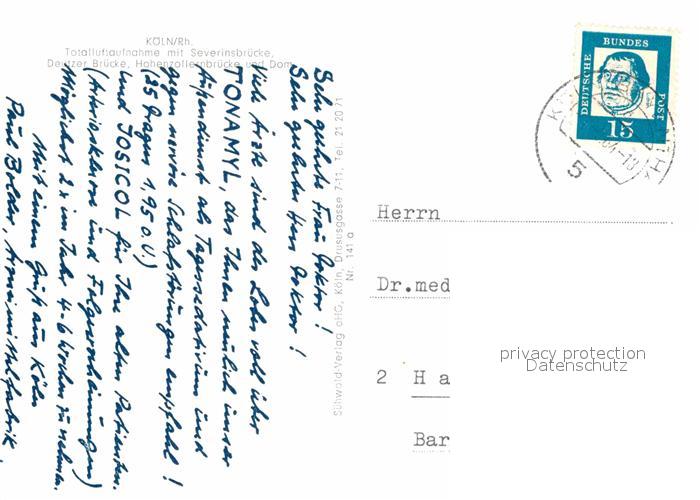 KÖLN/Rh.
Totalluftaufnahme mit Severinsbrücke,
Deutzer Brücke, Hohenzollernbrücke und Dom
Sehr geehrte Frau Doktor!
Sehr geehrter Herr Doktor!
Viele Ärzte sind des Lobes voll über
TONAMYL, das Ihnen neulich unser
Außendienst als Tagessedativum und
gegen nervöse Schlafstörungen empfahl!
(25 Dragees 1,95 o.U.)
Und JOSICOL für Ihre alten Patienten.
(Arteriosklerose und Folgeerscheinungen)
Möglichst 2x im Jahr 4-6 Wochen zu nehmen.
Mit einem Gruß aus Köln
Paul Bolder, Arzneimittelfabrik.
Sühwold-Verlag oHG, Köln, Drususgasse 7-11, Tel. 21 20 71
Nr. 141 a
DEUTSCHE BUNDES POST
15
5
Herrn
Dr.med
2 H a
Bar
privacy protection
Datenschutz